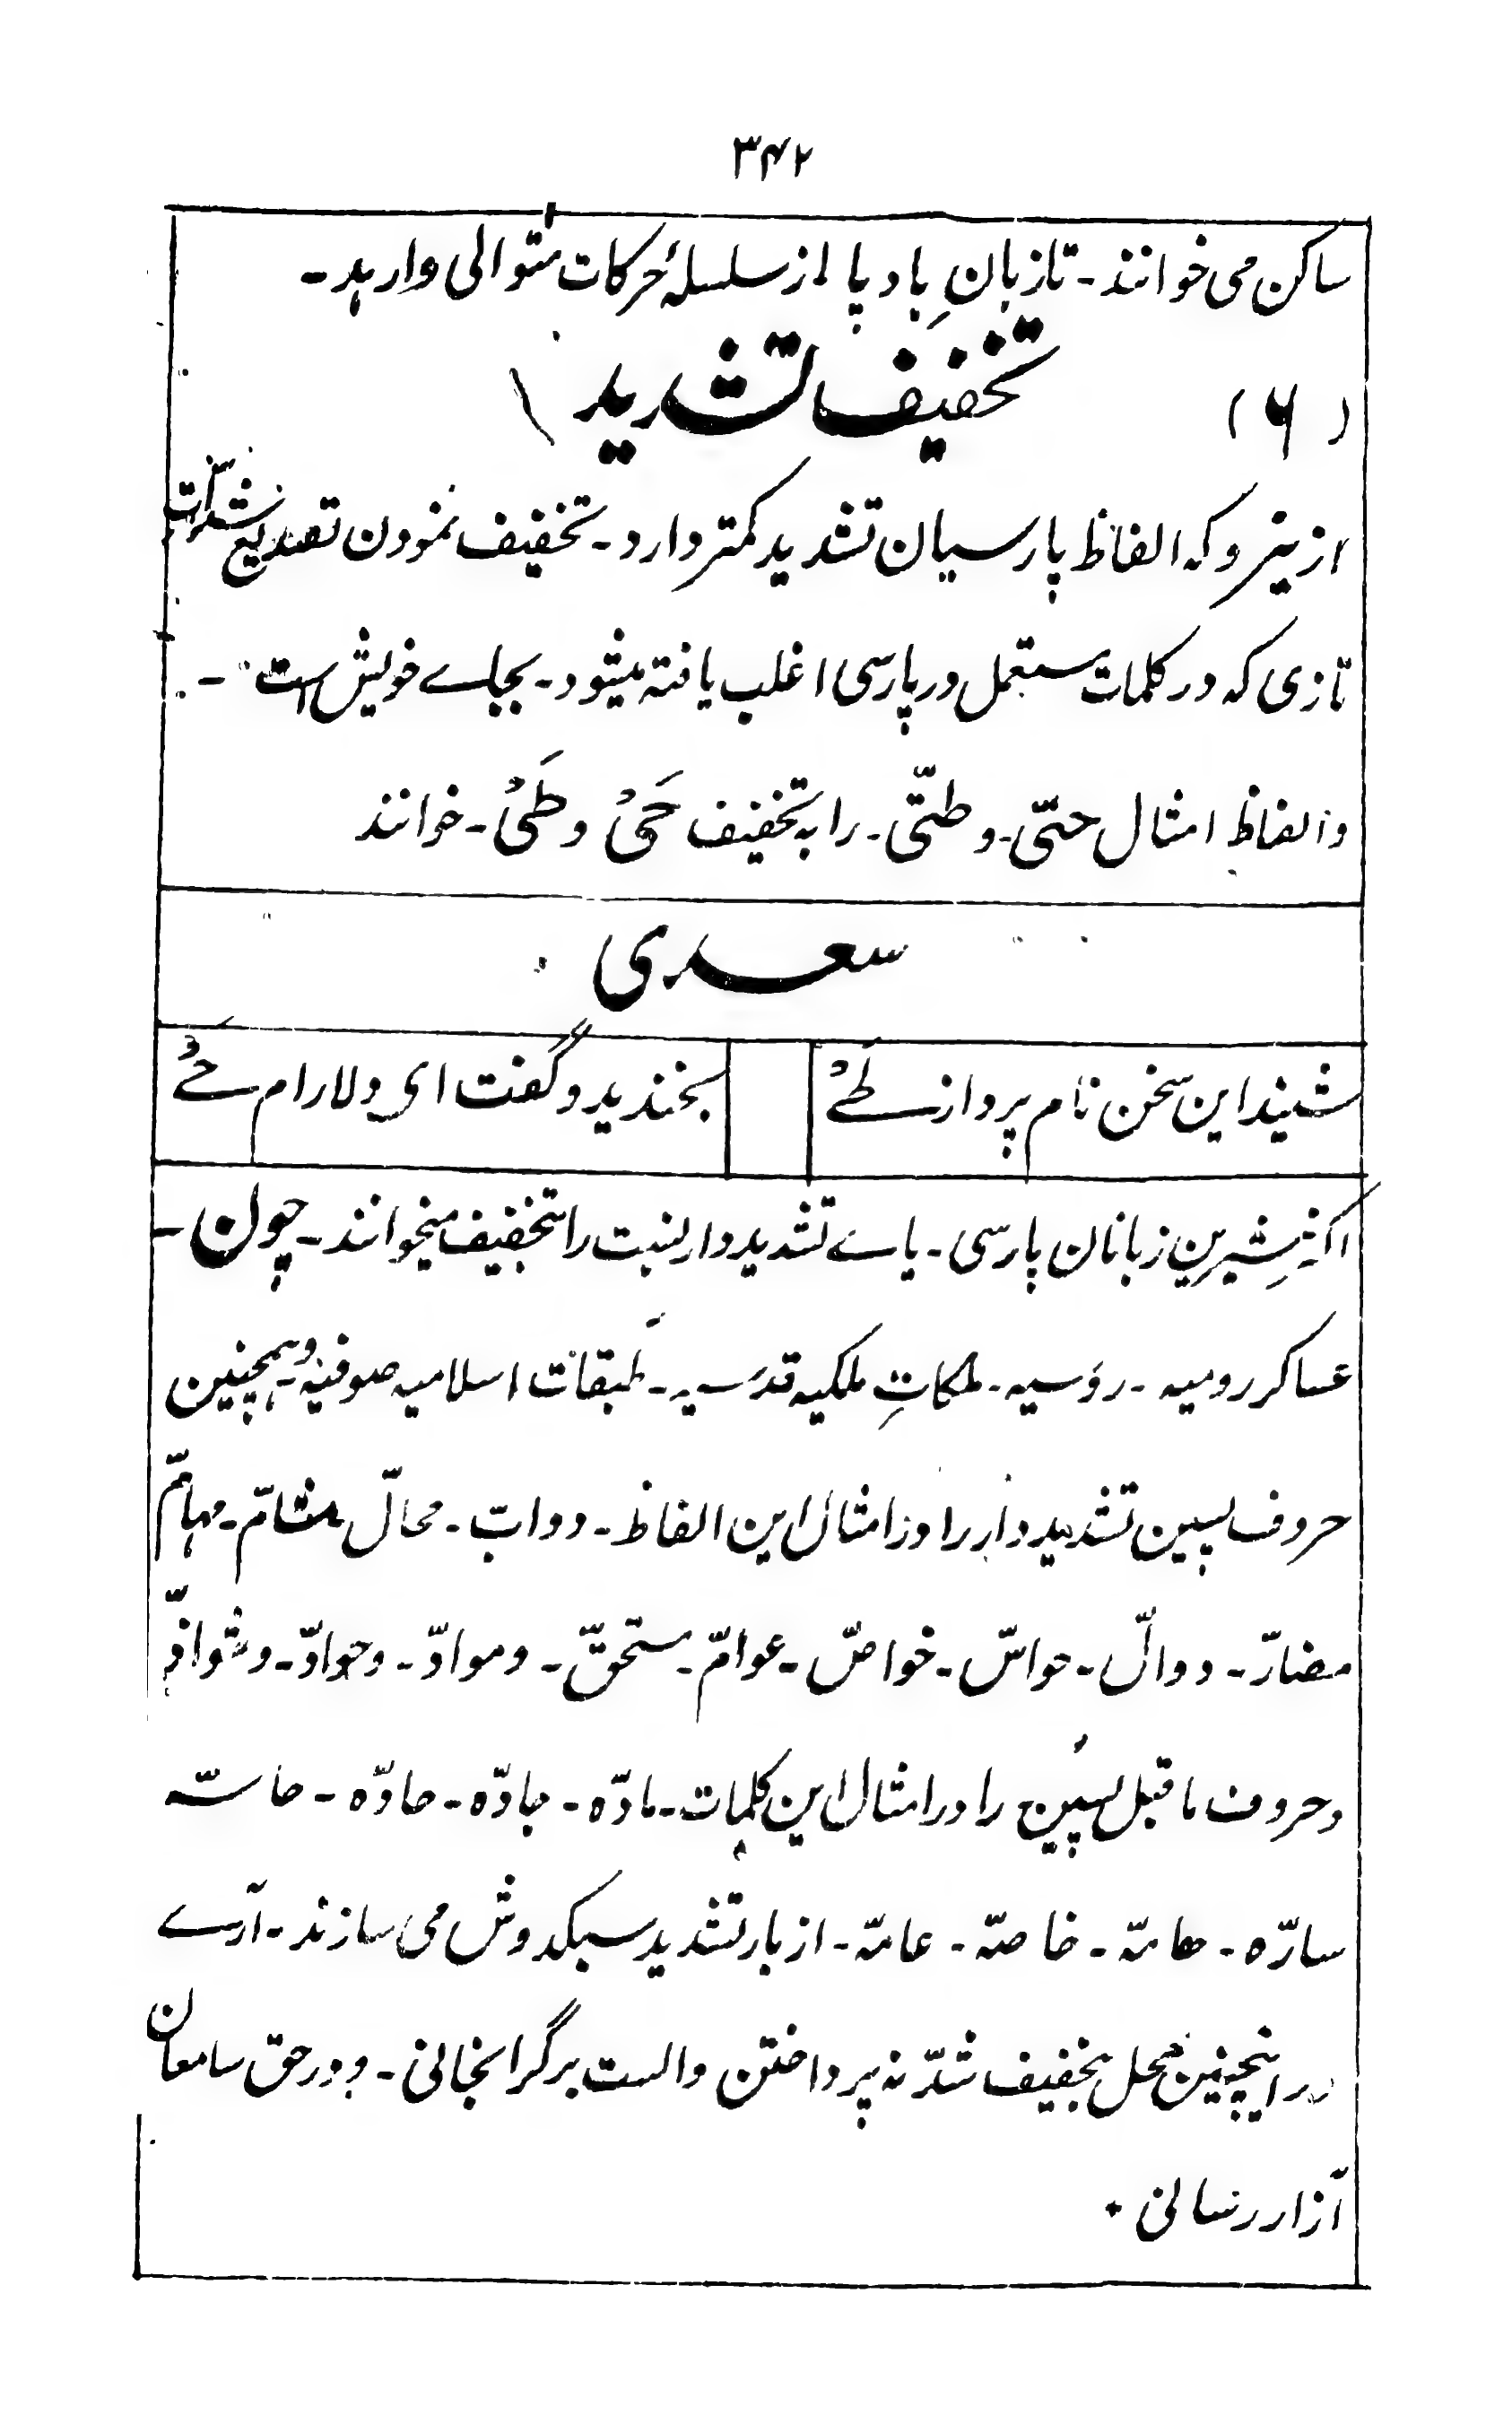 ۳۴۲
ساکن می خوانند ـ تا زبانِ باد پا از سلسلۂ حرکات متوالی وارہد ـ
(۶) تخفیف تشدید
ازینرو کہ الفاظ پارسیان تشدید کمتر دارد ـ تخفیف نمودن تصدیع تشدیدات
تازی کہ در کلمات مستعمل در پارسی اغلب یافتہ میشود ـ بجاے خویش است ـ
و الفاظ امثال حتّی ـ و طتّی ـ را بہ تخفیف حَیْ و طَیْ ـ خوانند
سعدی
شنید این سخن نام بردار طے
بخندید و گفت ای دلارام حے
اکثرِ شیرین زبانان پارسی ـ یاے تشدید دار نسبت را بتخفیف میخوانند ـ چون ـ
عساکر رومیہ ـ روسیہ ـ ملکاتِ ملکیہ قدسیہ ـ طبقات اسلامیہ صوفیہ و ہمچنین
حروف پسین تشدید دار را در امثال این الفاظ ـ دوابّ ـ محالّ مشامّ ـ مہامّ
مضارّ ـ دوالّ ـ حواسّ ـ خواصّ ـ عوامّ ـ مستحقّ ـ و موادّ ـ و جوادّ ـ و شواذّ
و حروف ما قبل پسین را در امثال این کلمات ـ مادّہ ـ جادّہ ـ حادّہ ـ حاسّہ
سارّہ ـ ھامّہ ـ خاصّہ ـ عامّہ ـ از بار تشدید سبکدوش می سازند ـ آرے
در اینچنین محل بتخفیف شدّ نہ پرداختن دالست بر گرانجانی ـ و در حق سامعان
آزار رسانی ٠